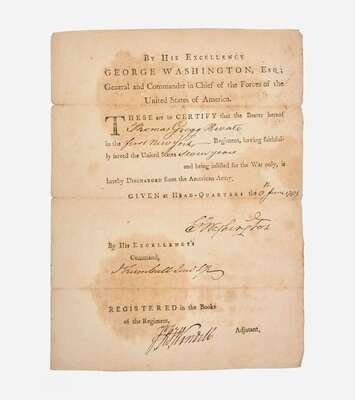 By His EXCELLENCY
GEORGE WASHINGTON, Esq;
General and Commander in Chief of the Forces of the
United States of America.
THESE are to CERTIFY that the Bearer hereof
Thomas Gregg Private
in the first New York Regiment, having faithful-
ly served the United States seven years
and being inlisted for the War only, is
hereby DISCHARGED from the American Army.
GIVEN at HEAD-QUARTERS the June 1783
G Washington
By His EXCELLENCY's
Command,
J Trumbull Jun
REGISTERED in the Books
of the Regiment,
Wendell
Adjutant,